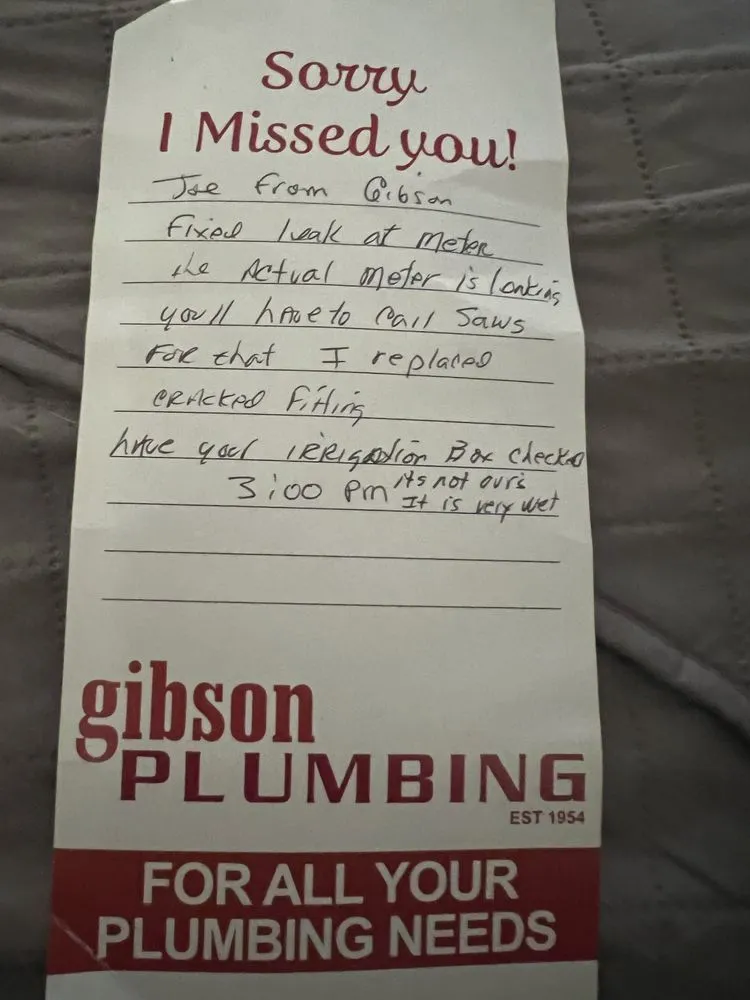 Sorry
I Missed you!
Joe From Gibson
Fixed leak at meter
the Actual meter is leaking
you'll have to call Saws
For that I replaced
cracked fitting
have your irrigation Box checked
3:00 pm its not ours
It is very wet
gibson
PLUMBING
EST 1954
FOR ALL YOUR
PLUMBING NEEDS